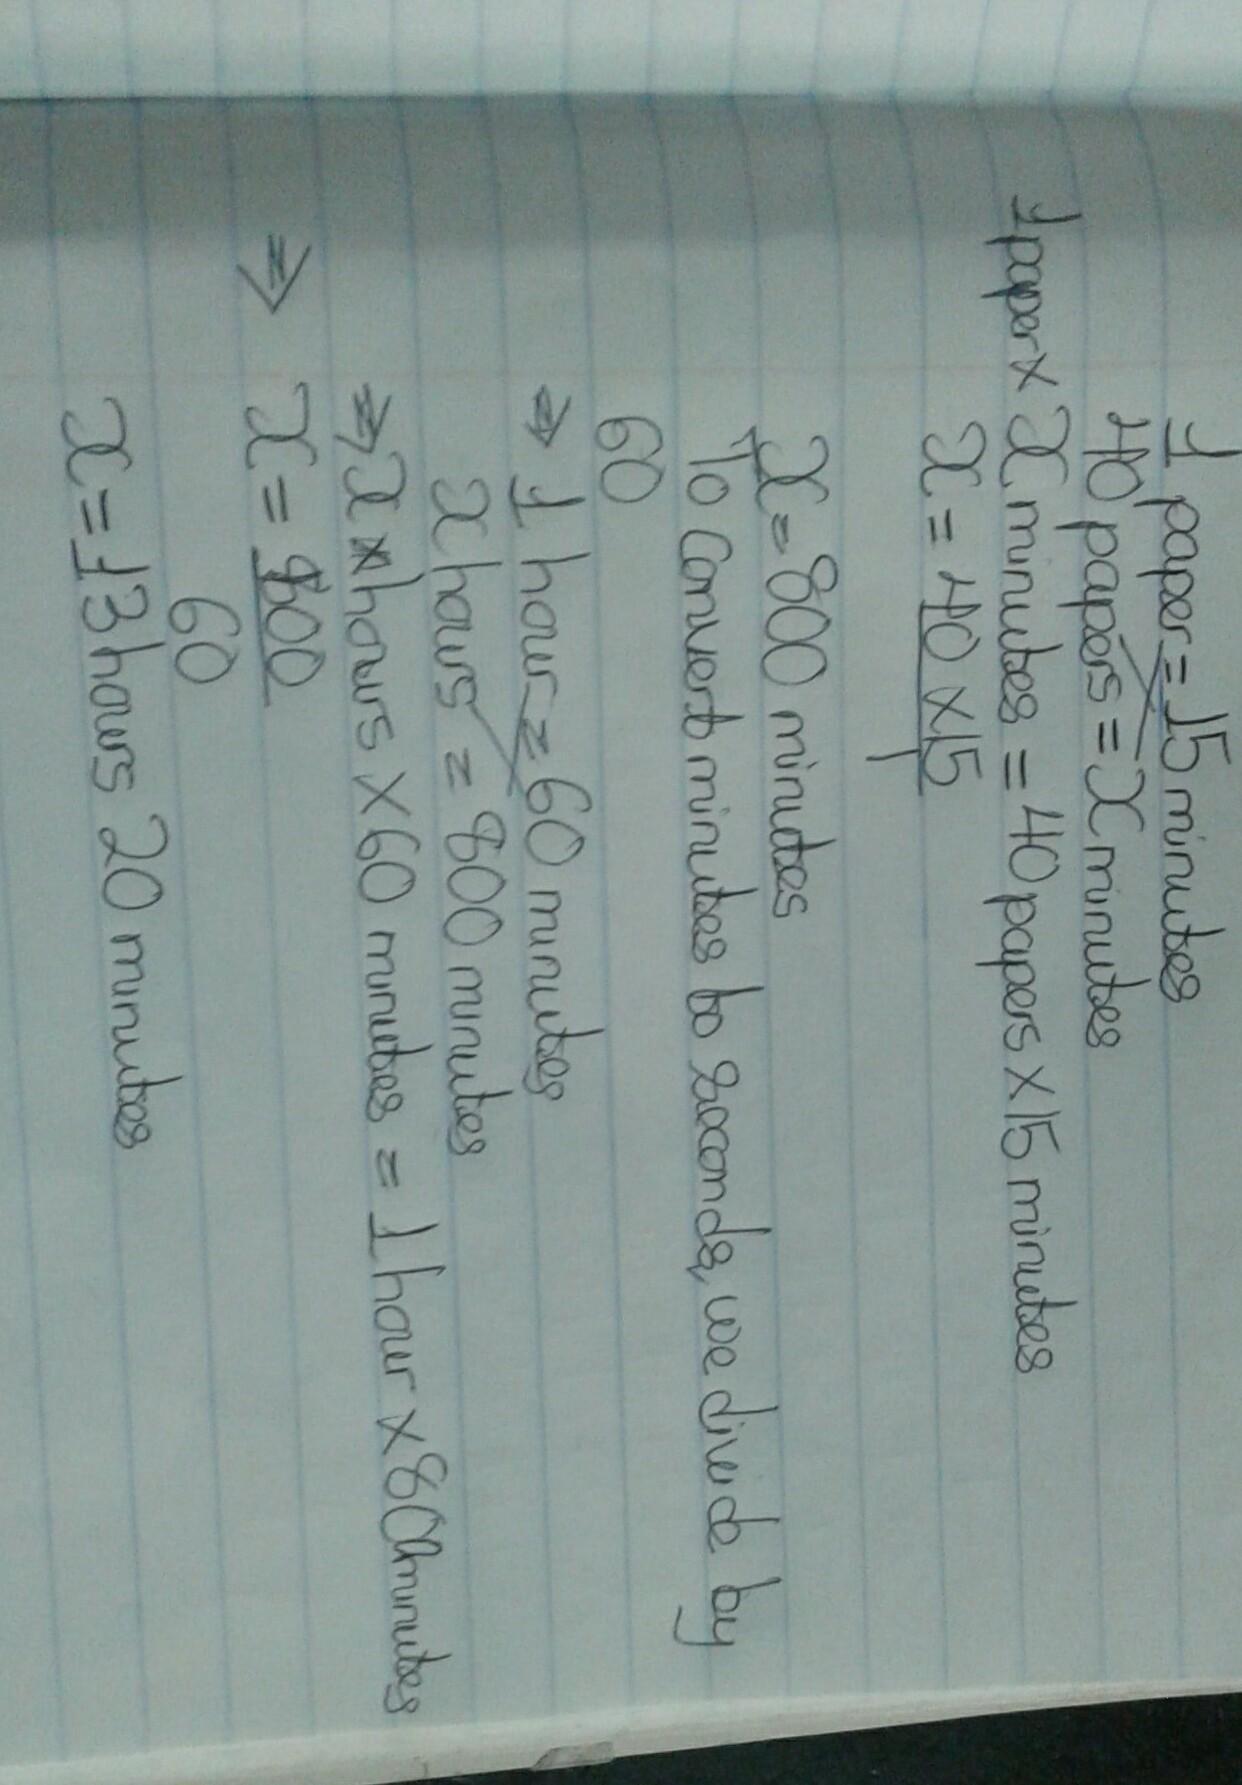 1 paper = 15 minutes
40 papers = x minutes
1 paper x x minutes = 40 papers x 15 minutes
x = 40 x 15
1
x = 800 minutes
To convert minutes to seconds, we divide by
60
⇒ 1 hour = 60 minutes
x hours = 800 minutes
⇒ x x hours x 60 minutes = 1 hour x 800 minutes
⇒ x = 800
60
x = 13 hours 20 minutes